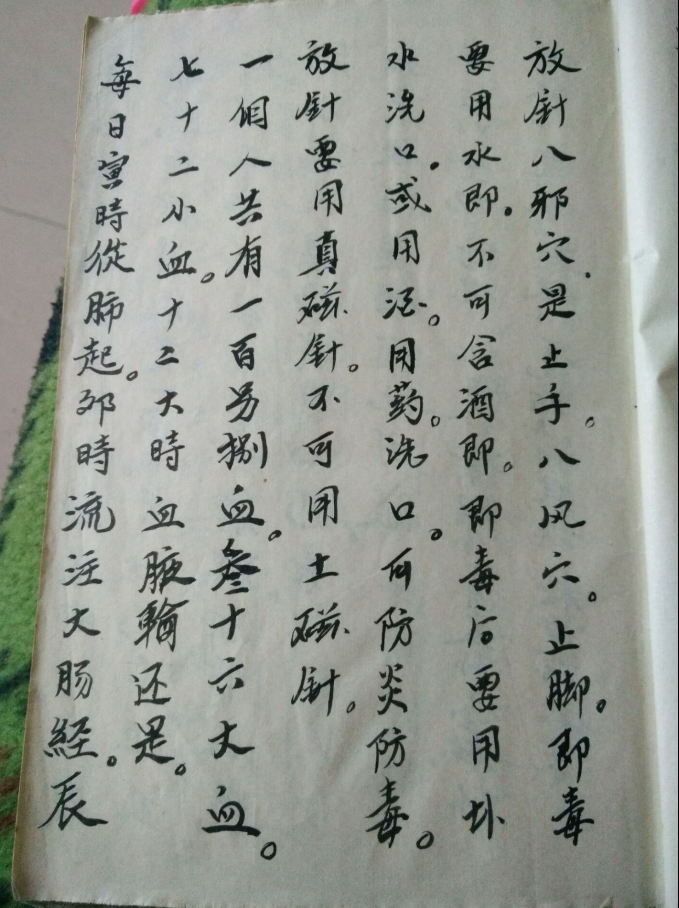 放針八邪穴是止手。八风穴。止脚。即毒
要用水即。不可含酒即。即毒后要用圤
水洗口。或用酒。用药。洗口。可防炎防毒。
放針要用真磁針。不可用土磁針。
一個人共有一百另捌血。叁十六大血。
七十二小血。十二大時血腋輪还是。
每日寅時從肺起。卯時流注大肠經。辰